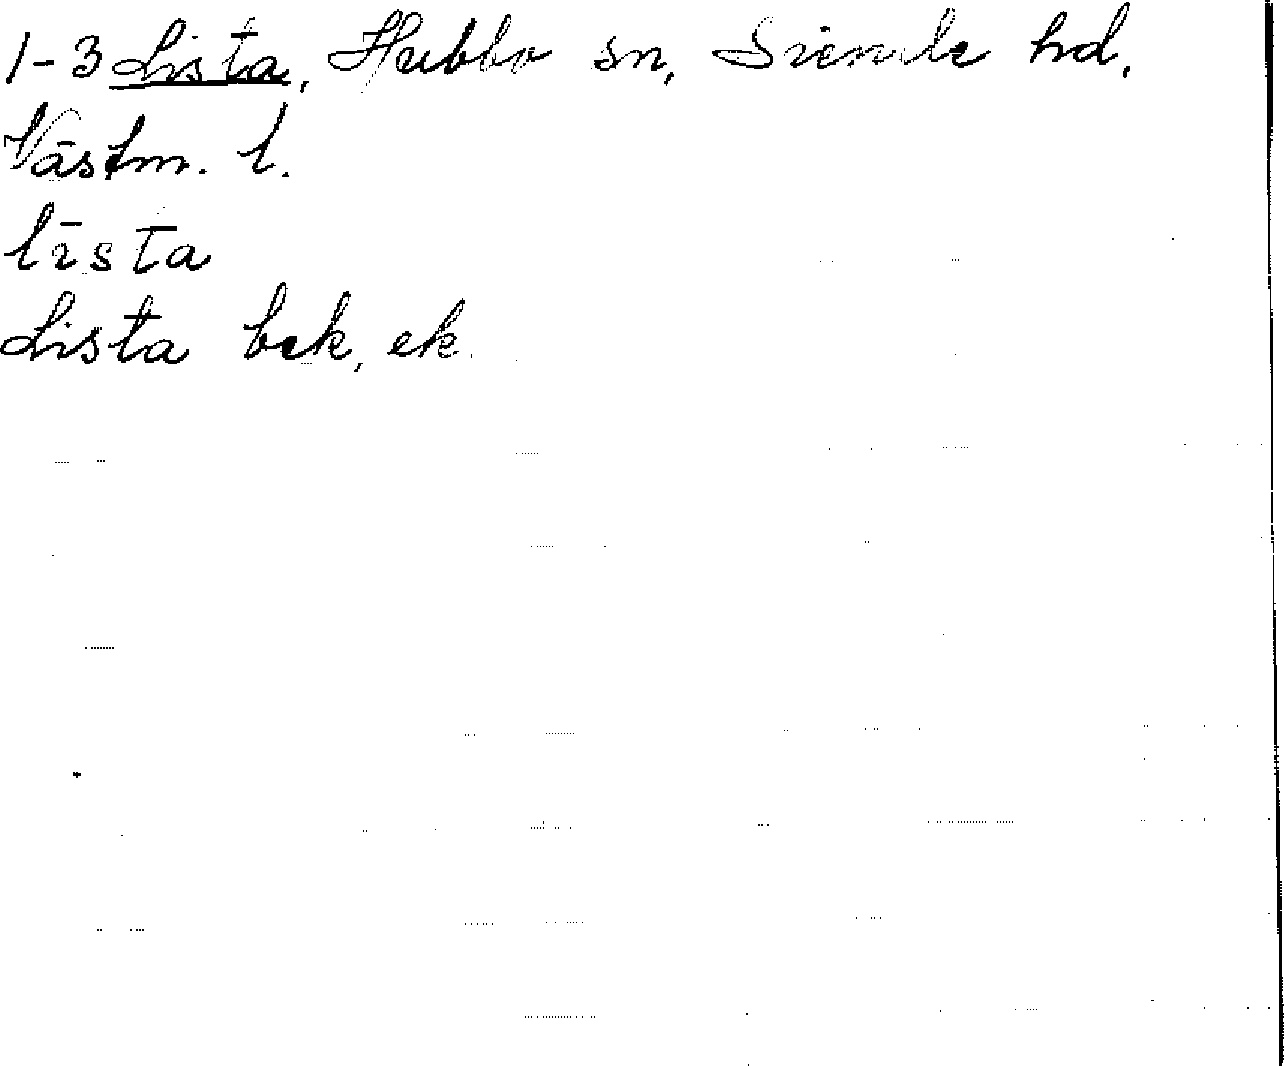 1-3 Lista, Hubbo sn, Siende hd,
Västm. l.
līsta
Lista bek, ek.